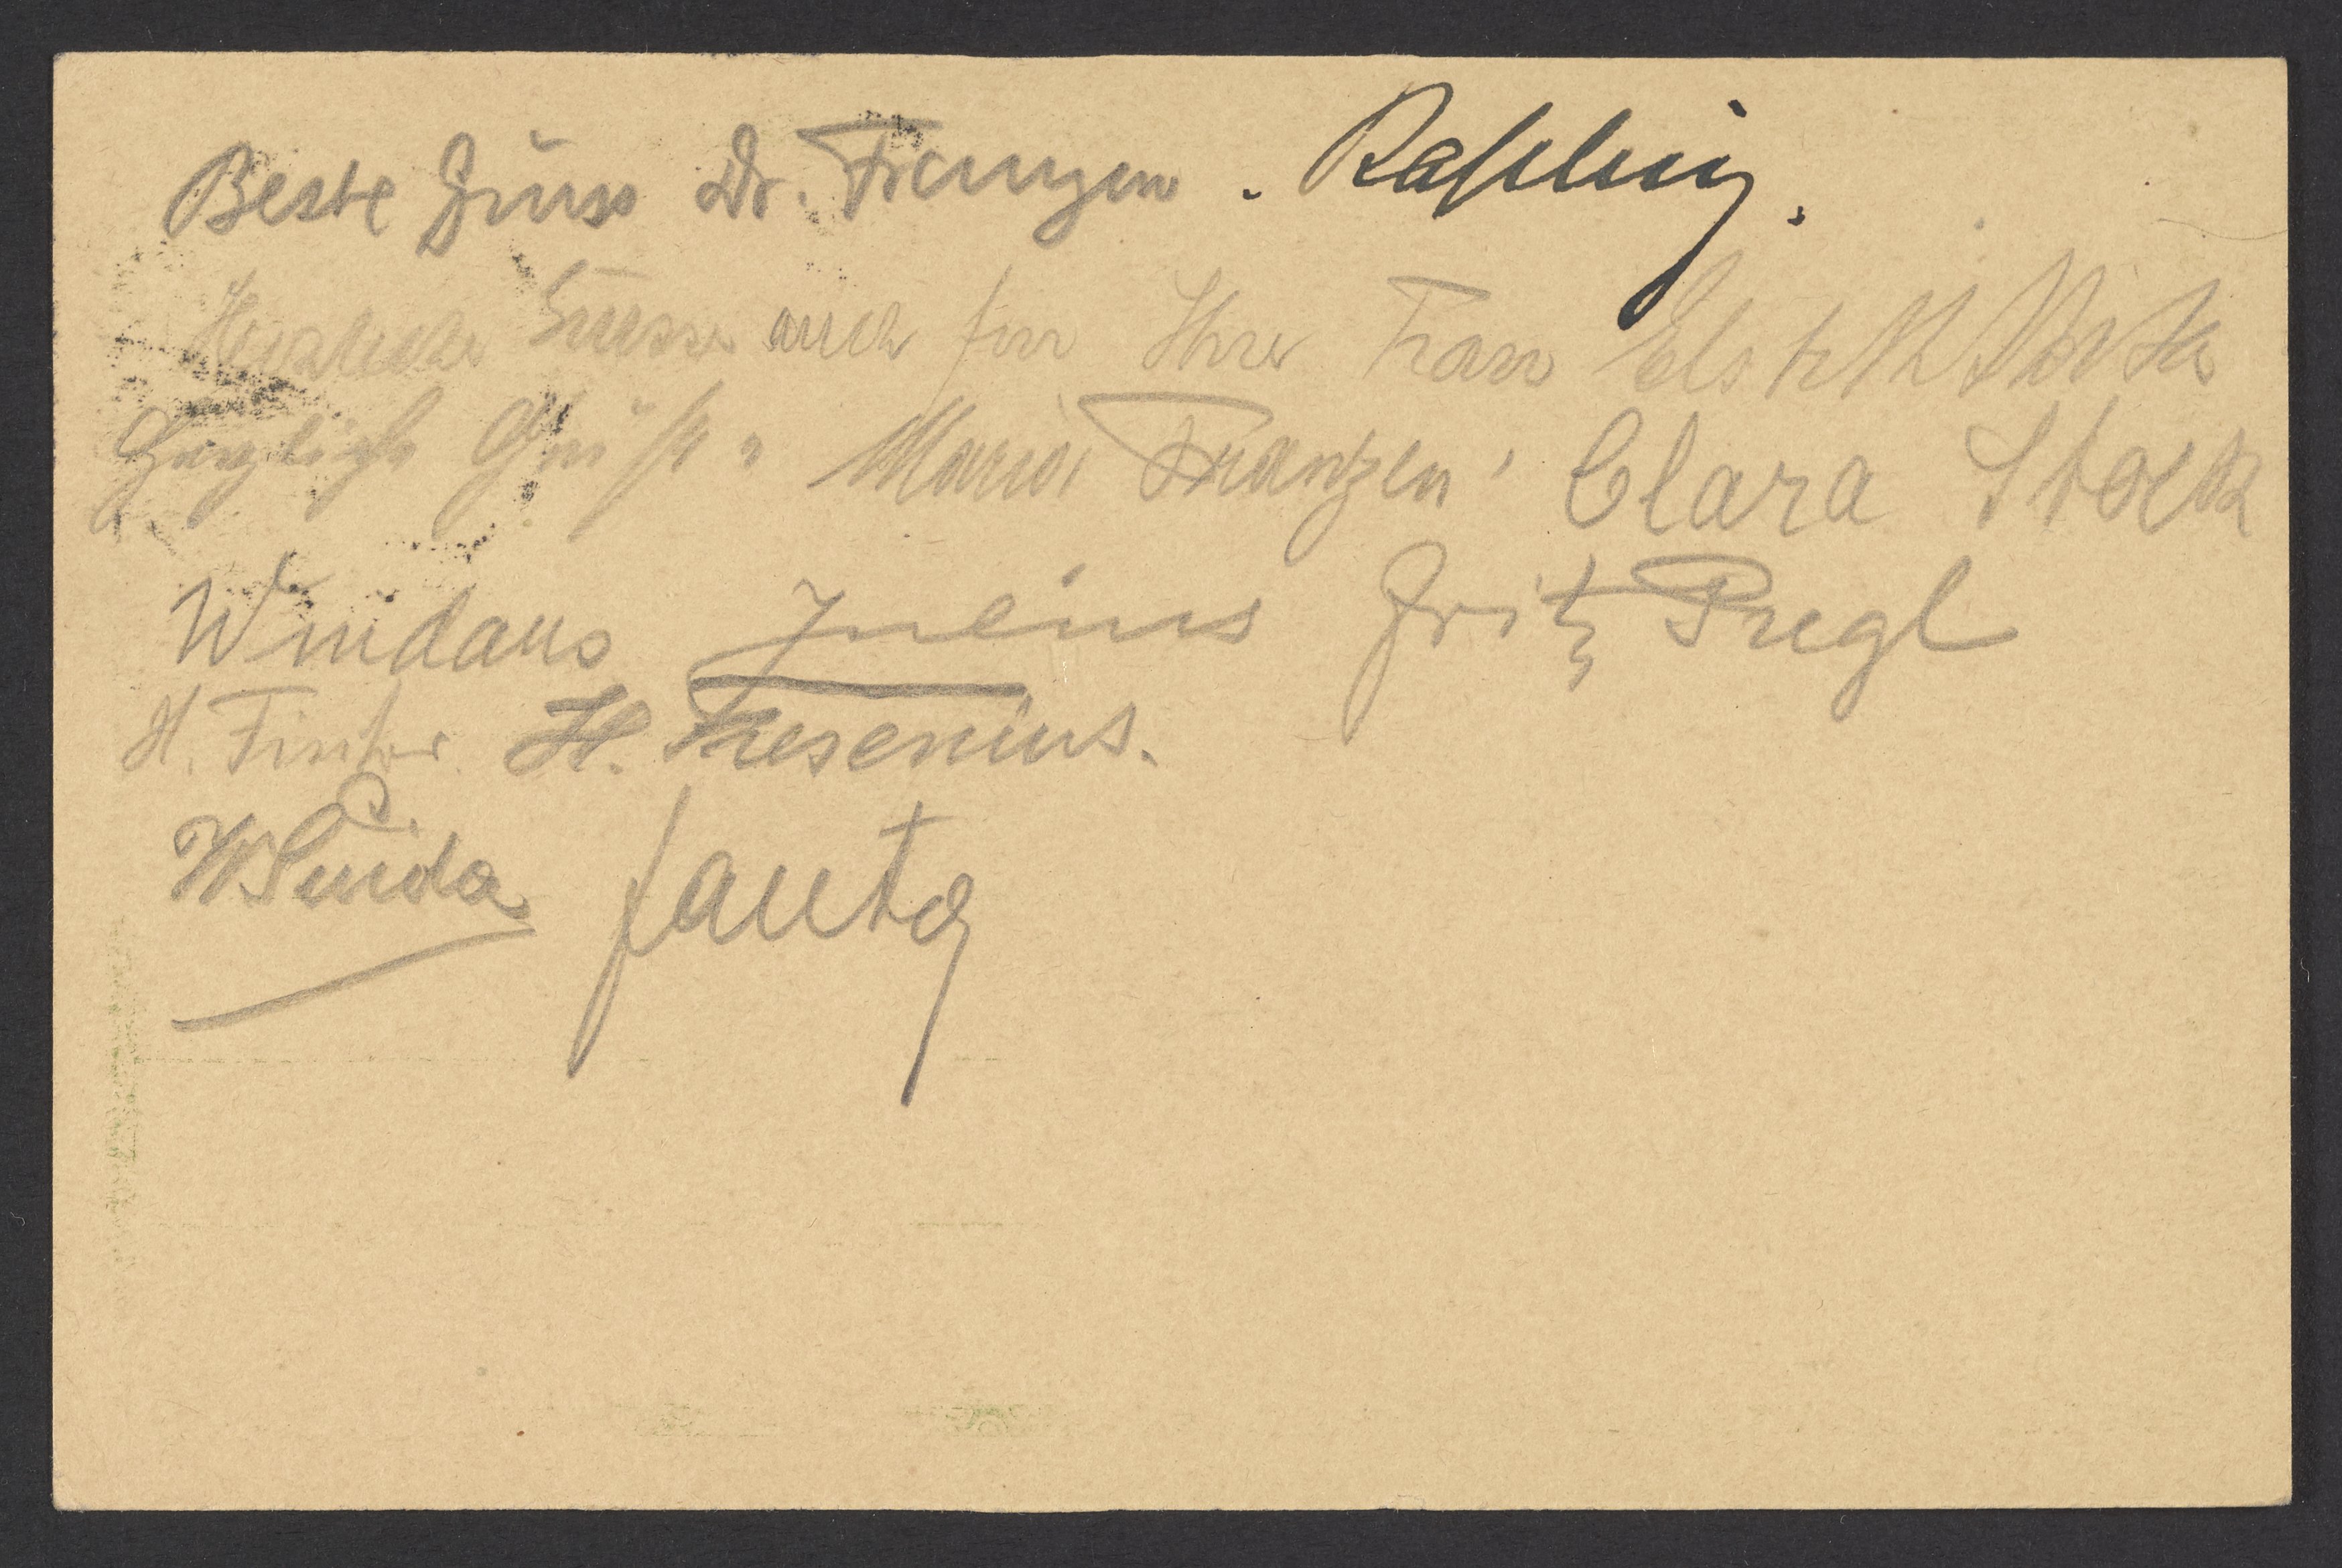 Beste Grüsse Dr. Franzen.
Herzliche Grüsse auch für Ihre Frau
Herzliche Grüße, Maria Franzen, Clara Stock
Windaus Fritz Pregl
H. Fischer H. Fresenius.
W Suida